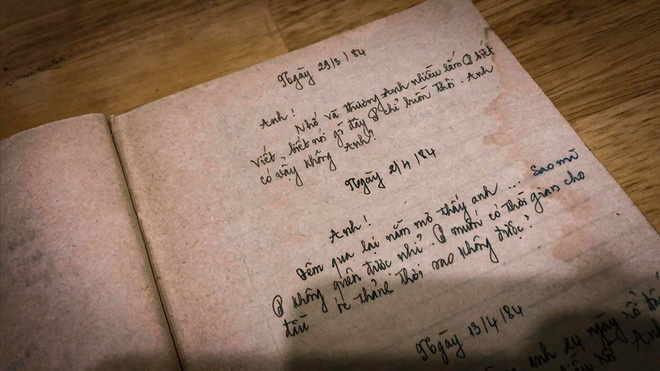 Ngày 29/3/84
Anh!
Nhớ và thương Anh nhiều lắm P biết
viết, biết nói gì đây P chỉ buồn thôi. Anh
có vậy không Anh?
Ngày 2/4/84
Anh!
Đêm qua lại nằm mơ thấy anh... Sao mà
P không quên được nhỉ. P muốn có thời gian cho
đầu óc thảnh thơi sao không được?
Ngày 13/4/84
anh 24 ngày rồ
Anh